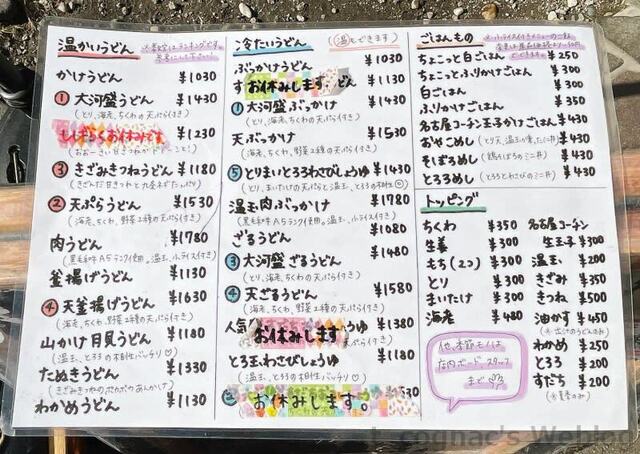 温かいうどん
かけうどん ¥1030
① 大河盛うどん ¥1430
(とり、海老、ちくわの天ぷら付き)
しばらくお休みです ¥1230
③ きざみきつねうどん ¥1180
② 天ぷらうどん ¥1530
(海老、ちくわ、野菜2種の天ぷら付き)
肉うどん ¥1780
(黒毛和牛A5ランク使用。温玉、小ライス付き)
釜揚げうどん ¥1130
④ 天釜揚げうどん ¥1630
(海老、ちくわ、野菜2種の天ぷら付き)
山かけ月見うどん ¥1180
(温玉、とろろの相性バッチリ♡)
たぬきうどん ¥1330
わかめうどん ¥1130
冷たいうどん
(温もできます)
ぶっかけうどん ¥1030
お休みします うどん ¥1130
① 大河盛ぶっかけ ¥1430
(とり、海老、ちくわの天ぷら付き)
天ぶっかけ ¥1530
(海老、ちくわ、野菜2種の天ぷら付き)
⑤ とりまいとろろわさびしょうゆ ¥1430
(とり、まいたけの天ぷらと温玉、とろろの相性◎)
温玉肉ぶっかけ ¥1780
(黒毛和牛A5ランク使用。温玉、小ライス付き)
ざるうどん ¥1080
③ 大河盛ざるうどん ¥1480
(とり、海老、ちくわの天ぷら付き)
④ 天ざるうどん ¥1580
(海老、ちくわ、野菜2種の天ぷら付き)
人気! お休みします ¥1380
とろ玉わさびしょうゆ ¥1180
(温玉、とろろの相性バッチリ♡)
② お休みします。
ごはんもの
ちょこっと白ごはん ¥250
ちょこっとふりかけごはん ¥300
白ごはん ¥300
ふりかけごはん ¥350
名古屋コーチン玉子かけごはん ¥430
おやこめし ¥430
そぼろめし (鶏そぼろのミニ丼) ¥430
とろろめし (とろろとわさびのミニ丼) ¥430
トッピング
ちくわ ¥350
生姜 ¥300
もち(2コ) ¥300
とり ¥300
まいたけ ¥300
海老 ¥480
名古屋コーチン
生玉子 ¥300
温玉 ¥200
きざみ ¥350
きつね ¥500
油かす ¥450
わかめ ¥250
とろろ ¥200
すだち ¥200
他、季節モノは
店内ボード・スタッフ
まで
cognac's Weblog